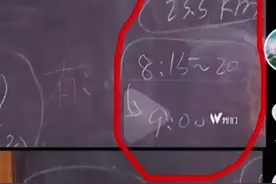 23.5 km
有:
8:15~20
9:00
W